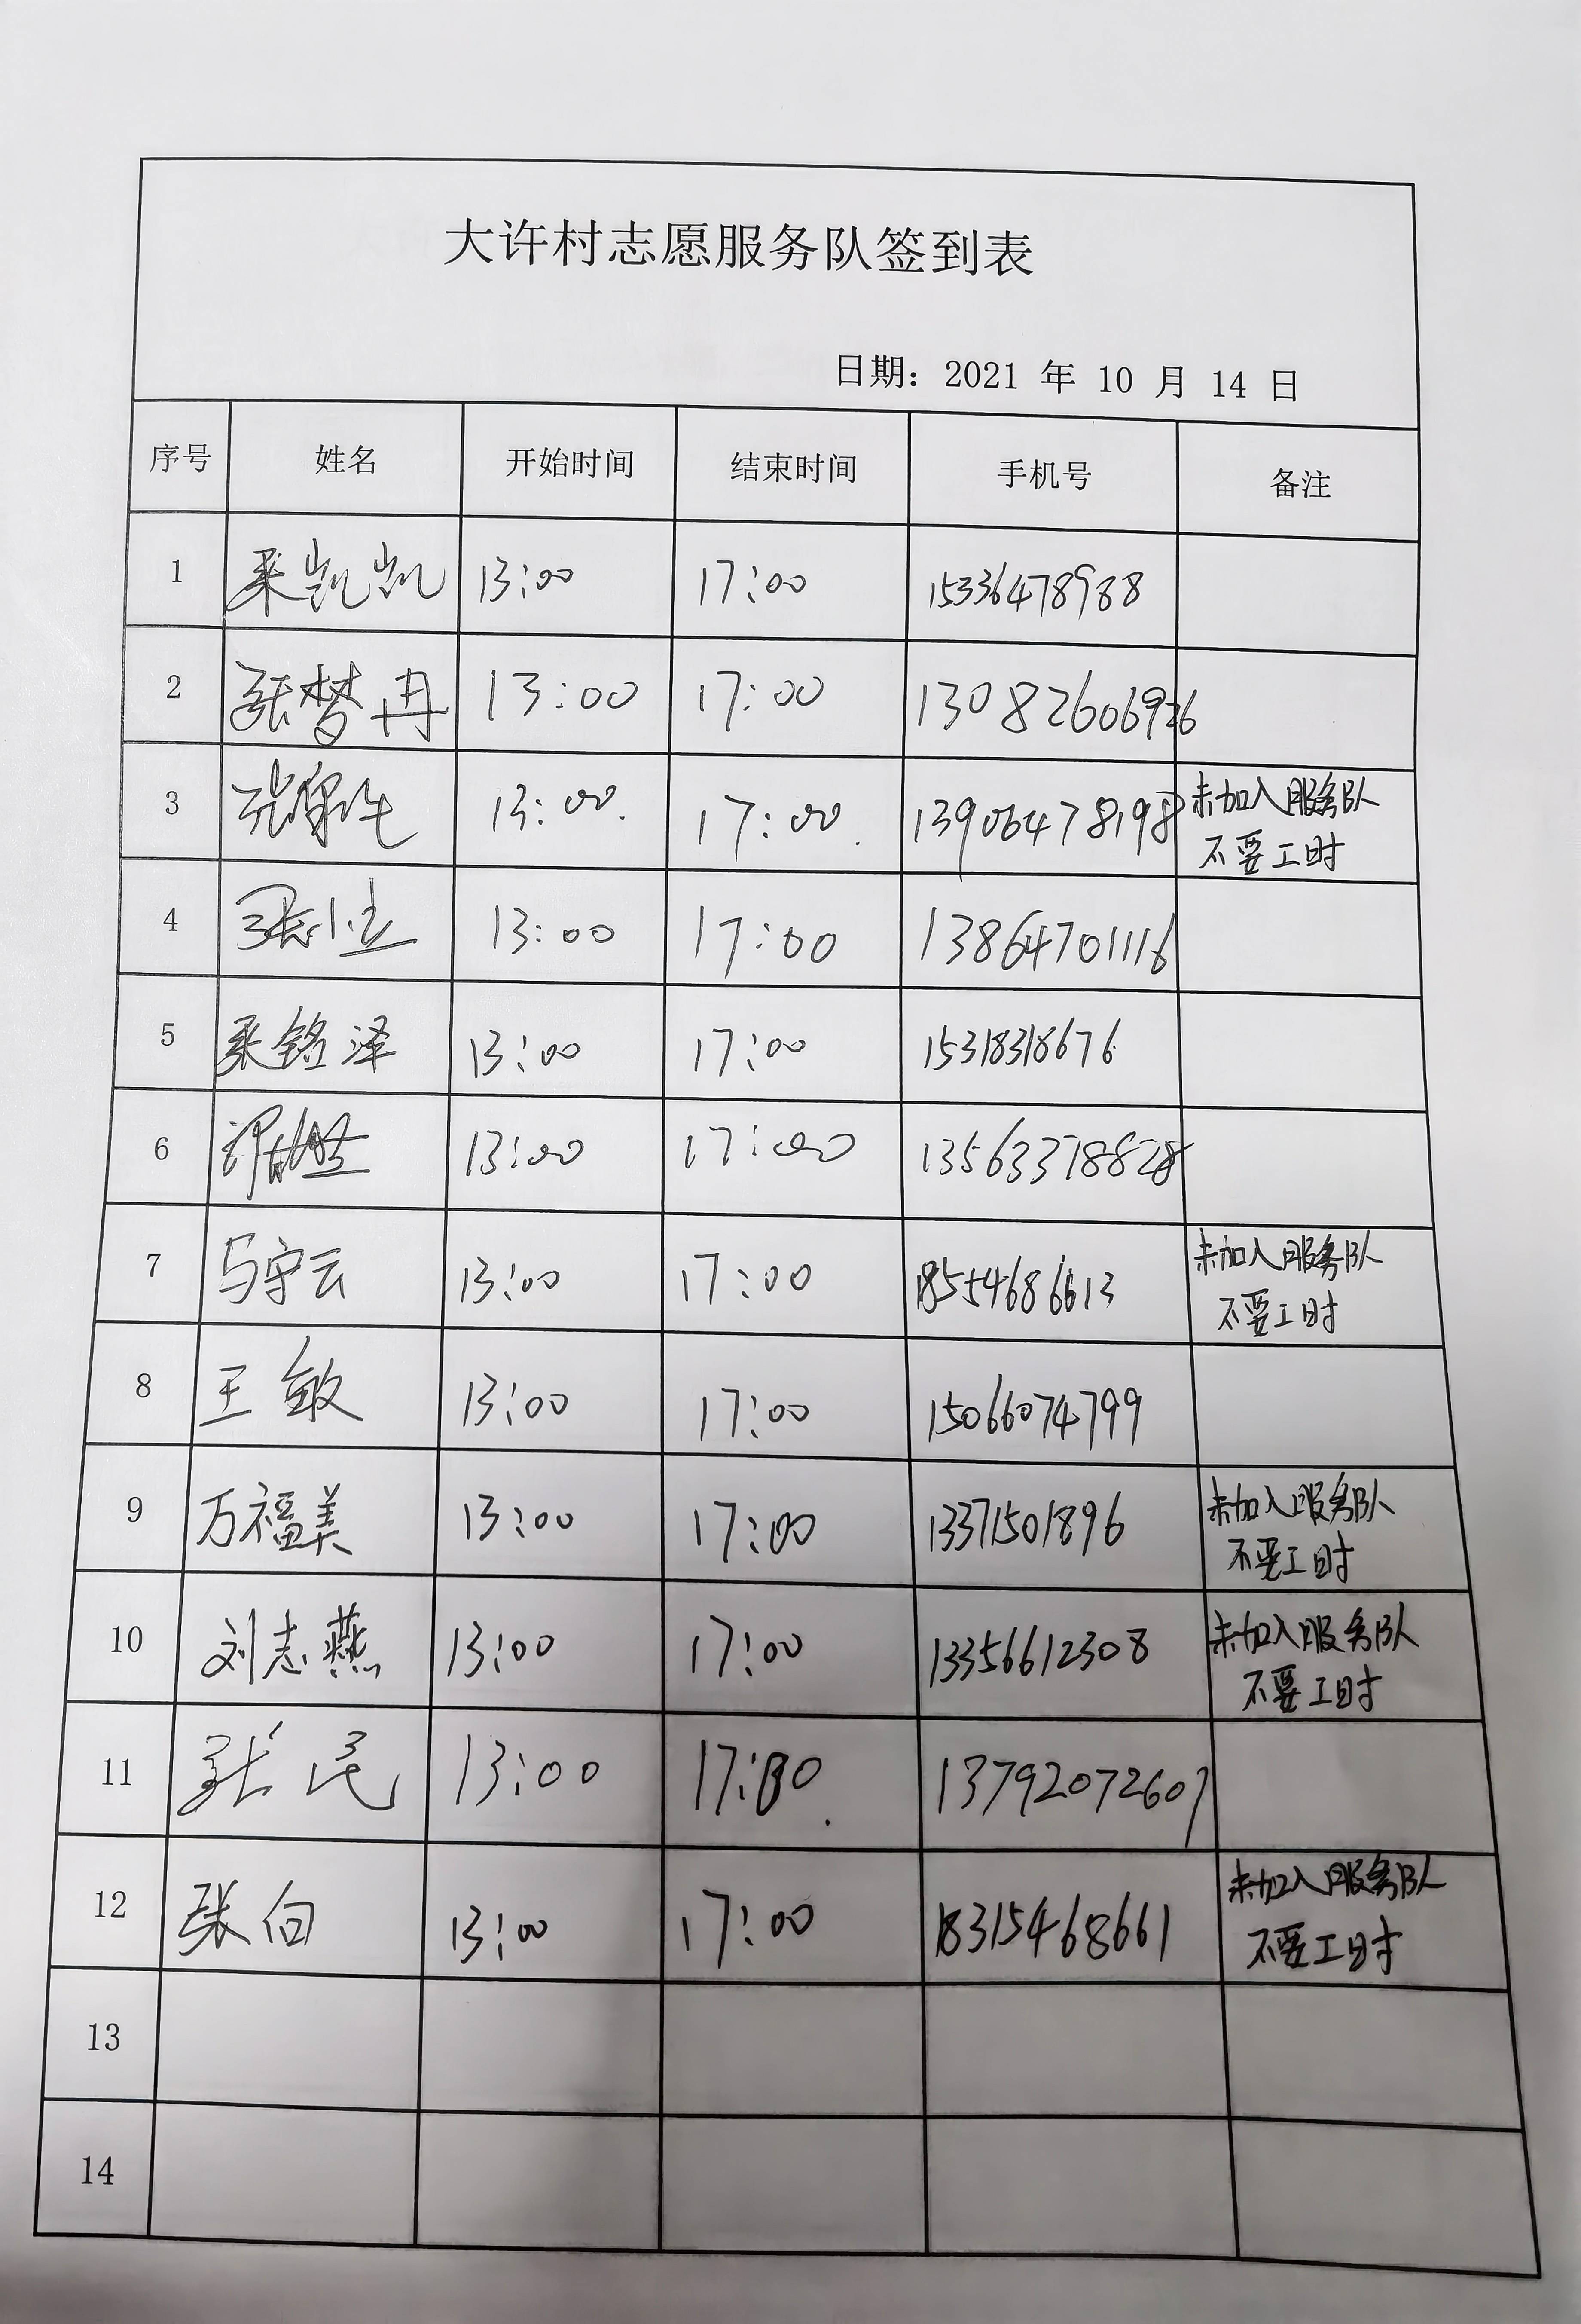 大许村志愿服务队签到表
日期：2021 年 10 月 14 日
序号 姓名 开始时间 结束时间 手机号 备注
1 凯凯 13:00 17:00 15336478988
2 张梦冉 13:00 17:00 13082606926
3 13:00 17:00 13906478198 未加入服务队
不要工时
4 张小立 13:00 17:00 13864701116
5 铭泽 13:00 17:00 15318318676
6 13:00 17:00 13563378828
7 马守云 13:00 17:00 18554686613 未加入服务队
不要工时
8 王敏 13:00 17:00 15066074799
9 万福美 13:00 17:00 13371501896 未加入服务队
不要工时
10 刘志燕 13:00 17:00 13356612308 未加入服务队
不要工时
11 张民 13:00 13792072607
12 张白 13:00 17:00 18315468661 未加入服务队
不要工时
13
14